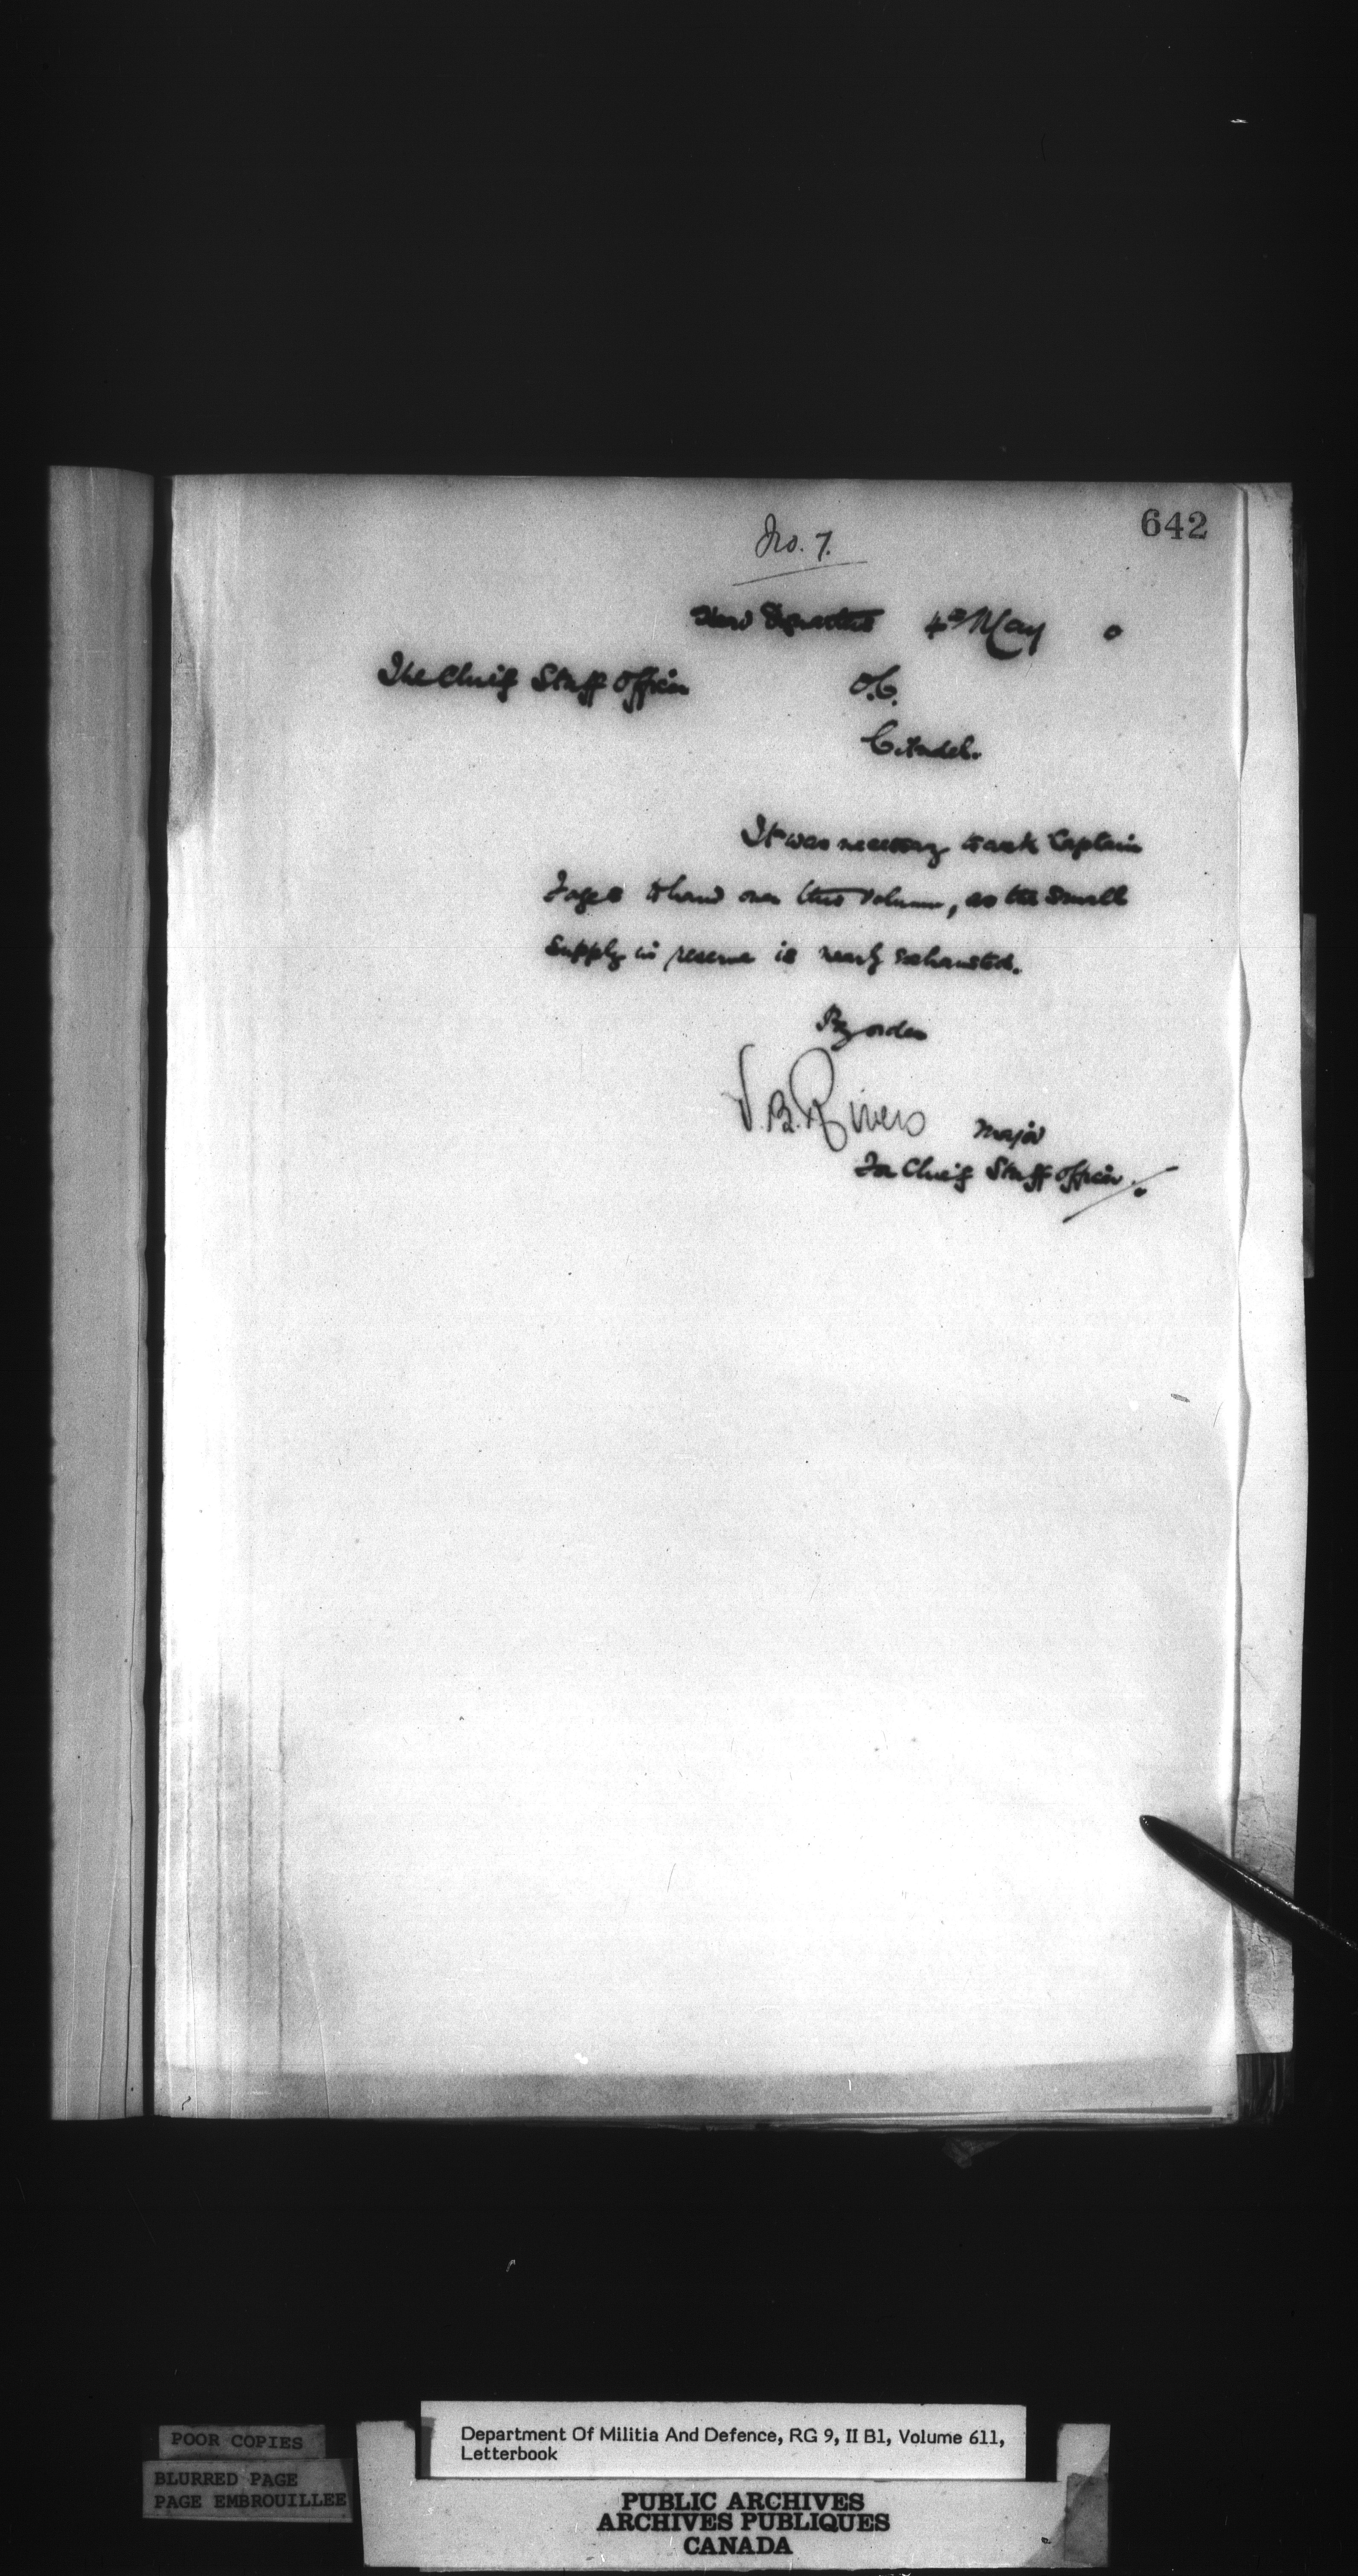 642
No. 7.
Head Quarters 4th May 0
The Chief Staff Officer O.C.
Citadel.
It was necessary to ask Captain
Fages to hand over this volume, as the small
supply in reserve is nearly exhausted.
By order
V.B. Rivers Major
For Chief Staff Officer.
POOR COPIES
BLURRED PAGE
PAGE EMBROUILLEE
Department Of Militia And Defence, RG 9, II B1, Volume 611,
Letterbook
PUBLIC ARCHIVES
ARCHIVES PUBLIQUES
CANADA